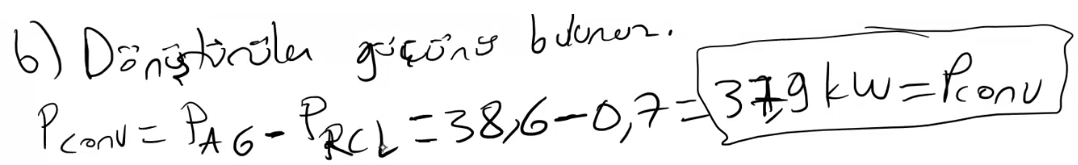 b) Dönüştürülen gücünü bulunuz.
Pconv = PAG - PRCL = 38,6 - 0,7 = 37,9 kW = Pconv